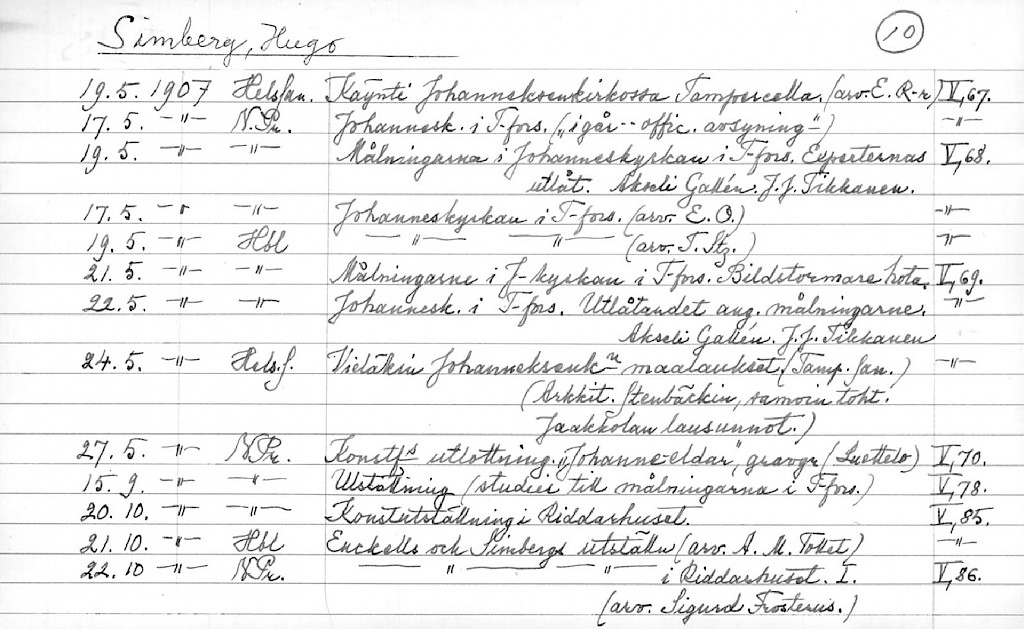 Simberg, Hugo 10
19.5. 1907 Hels.San. Käynti Johanneksenkirkossa Tampereella. (arv. E. R-r) V, 67.
17.5. -"- N.Pr. Johannesk. i T-fors. ("igår -- offic. avsyning-") -"-
19.5. -"- -"- Målningarna i Johanneskyrkan i T-fors. Experternas V, 68.
utlåt. Akseli Gallén. J.J. Tikkanen.
17.5. -"- -"- Johanneskyrkan i T-fors. (arv. E. O.) -"-
19.5. -"- Hbl -"- -"- (arv. T. Stz.) -"-
21.5. -"- -"- Målningarne i J-kyrkan i T-fors. Bildstormare hota. V, 69.
22.5 -"- -"- Johannesk. i T-fors. Utlåtandet ang. målningarne. -"-
Akseli Gallén. J.J. Tikkanen
24.5. -"- Hels.S. Vieläkin Johanneksenk:n maalaukset. (Tamp. San.) -"-
(Arkkit. Stenbäckin, samoin toht.
Jaakkolan lausunnot.)
27.5. -"- N.Pr. Konstf:s utlottning. "Johanne-eldar", gravyr (Luettelo) V, 70.
15.9. -"- -"- Utställning (studier till målningarna i T-fors.) V, 78.
20.10. -"- -"- Konstutställning i Riddarhuset. V, 85.
21.10. -"- Hbl Enckells och Simbergs utställn (arv. A. M. Tollet) -"-
22.10 -"- N.Pr. -"- -"- i Riddarhuset. I. V, 86.
(arv. Sigurd Frosterus.)